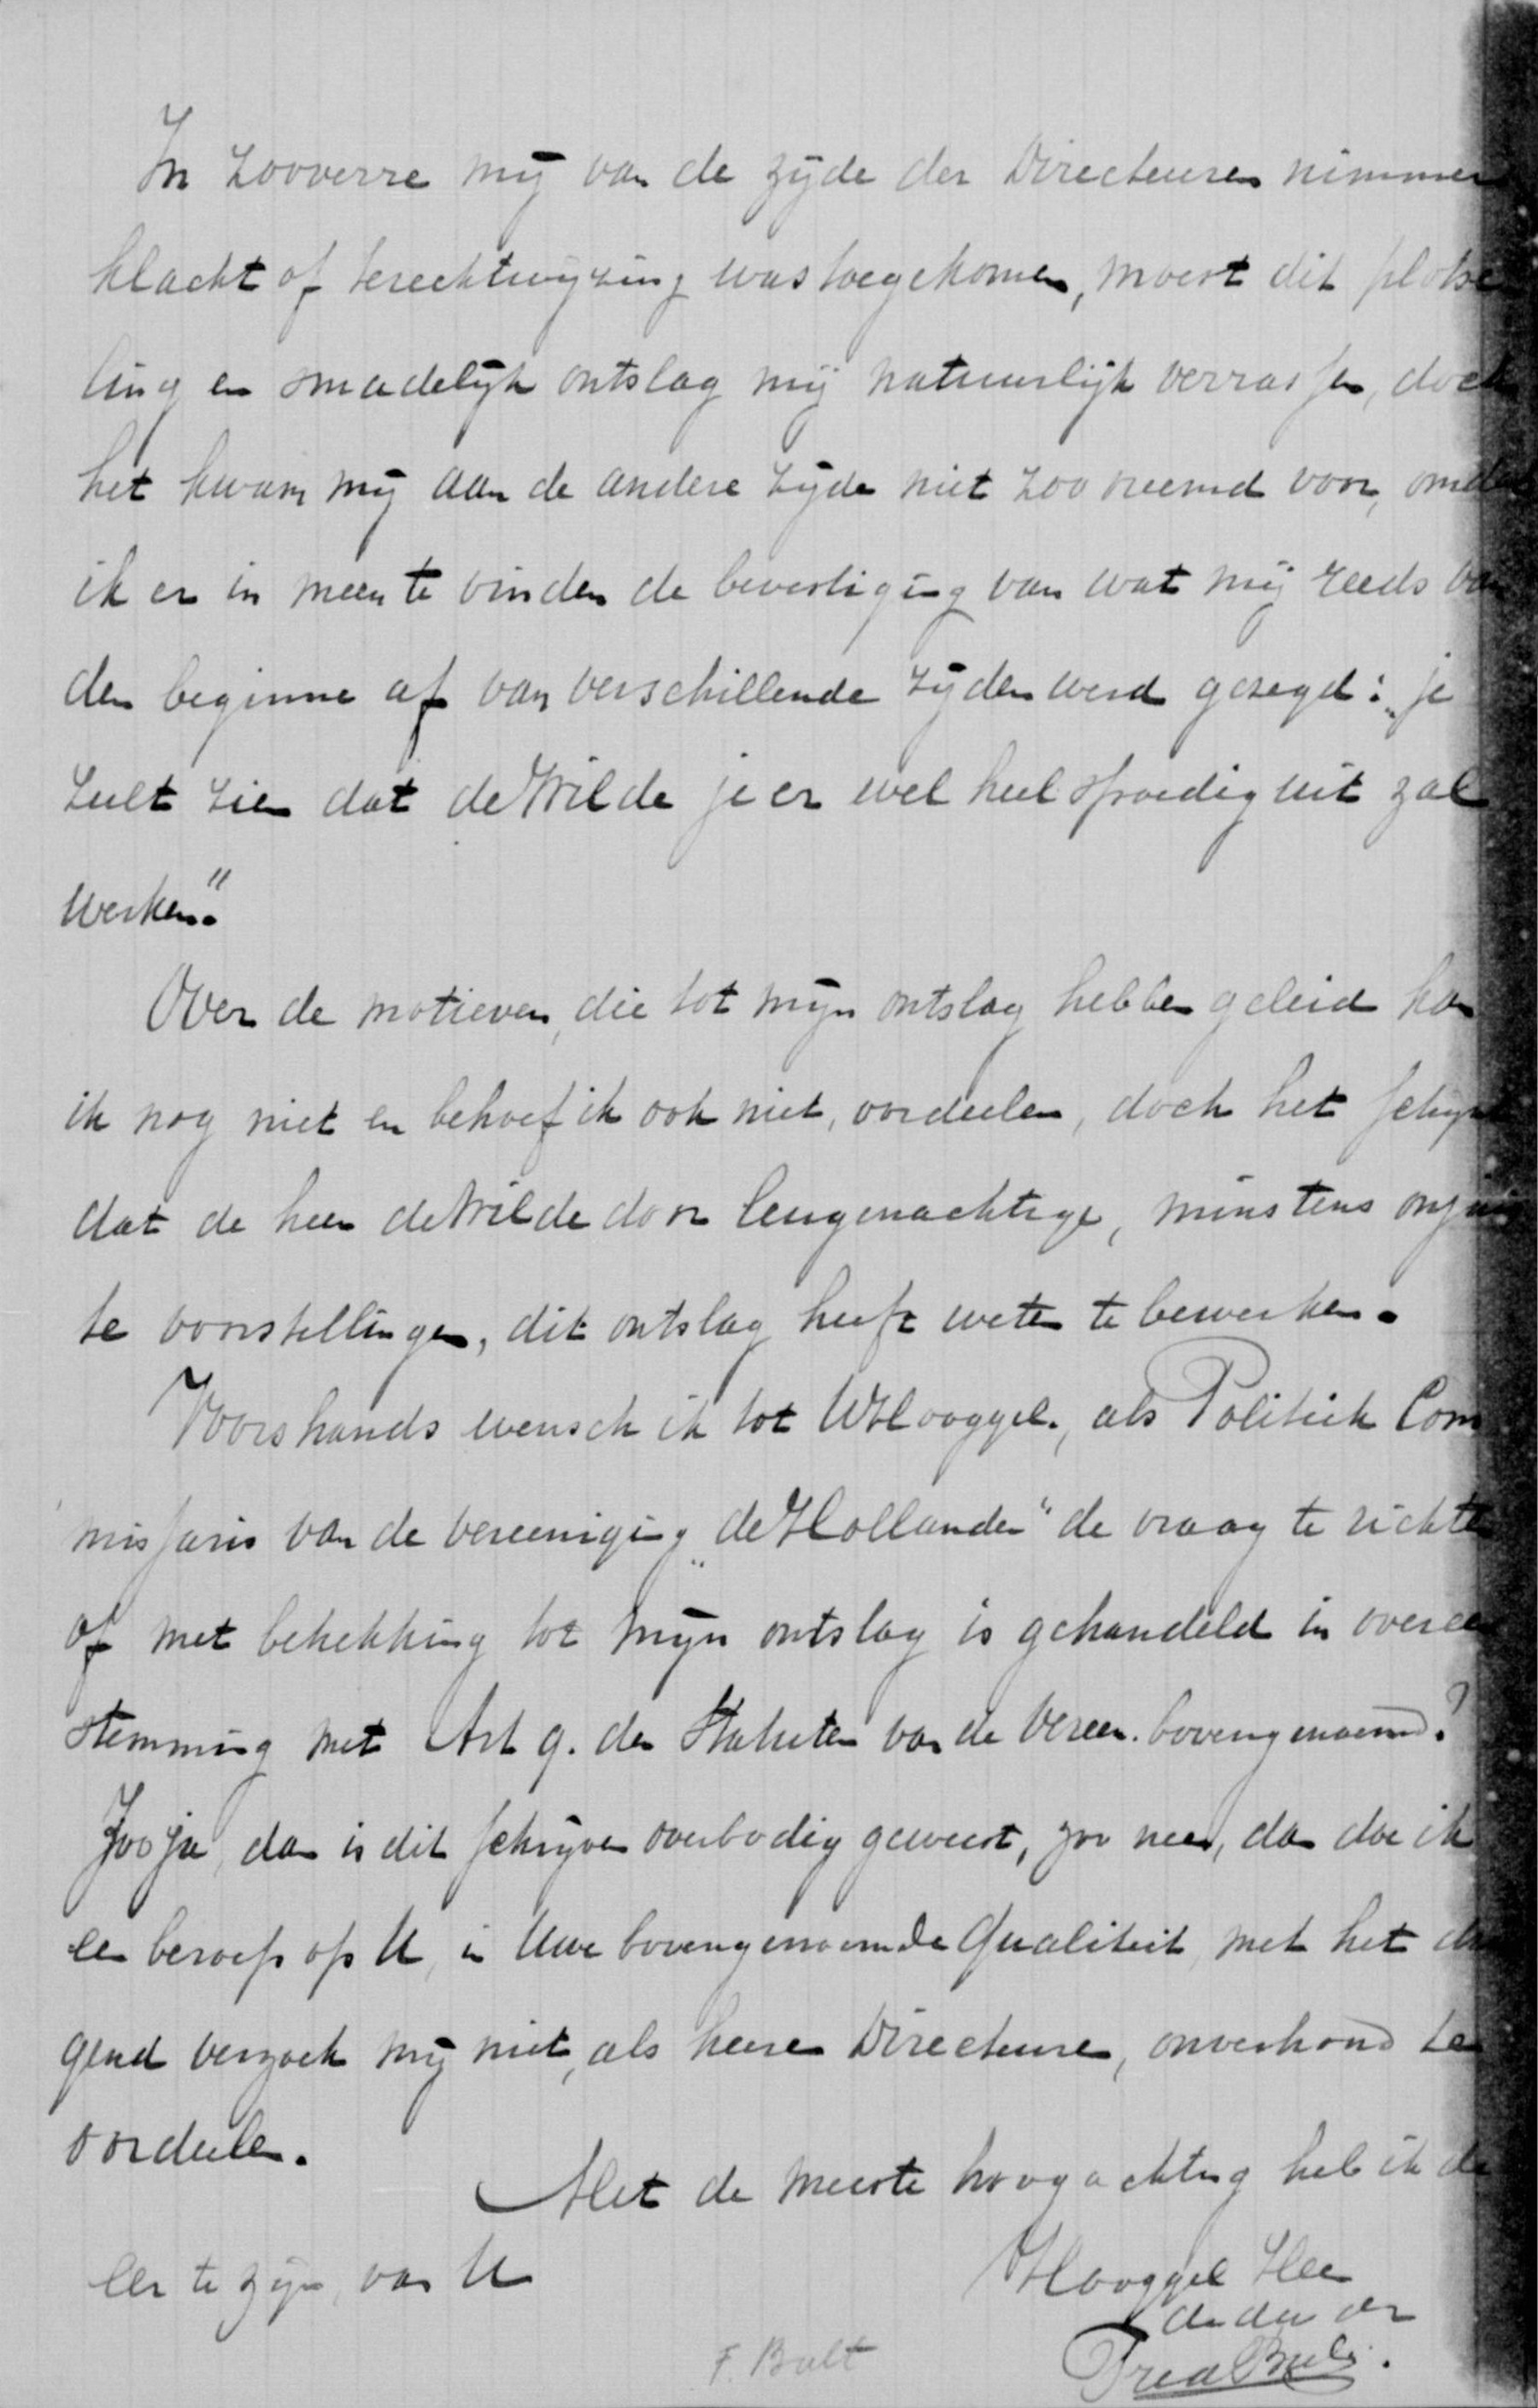 In zooverre mij van de zijde der Directeuren nimmer
klacht of terechtwijzing was toegekomen, moest dit plotse
ling en smadelijk ontslag mij natuurlijk verrassen, doch
het kwam mij aan de andere zijde niet zoo vreemd voor, omda
ik er in meen te vinden de bevestiging van wat mij reeds van
den beginne af van verschillende zijden werd gezegd: „je
zult zien dat de Wilde je er wel heel spoedig uit zal
werken."
Over de motieven, die tot mijn ontslag hebben geleid kan
ik nog niet en behoef ik ook niet, oordeelen, doch het schijnt
dat de heer de Wilde door leugenachtige, minstens onjuis
te voorstellingen, dit ontslag heeft weten te bewerken.
Voorshands wensch ik tot UHooggel., als Politiek Com
missaris van de vereeniging „de Hollander" de vraag te richten
of met betrekking tot mijn ontslag is gehandeld in overeen
stemming met Art 9. der Statuten van de Vereen. bovengenoemd?
Zoo ja, dan is dit schrijven overbodig geweest, zoo neen, dan doe ik
een beroep op U, in Uwe bovengenoemde Qualiteit, met het drin
gend verzoek mij niet, als heeren Directeuren, onverhoord te
oordeelen.
Met de meeste hoogachting heb ik de
eer te zijn, van U
Hooggel Heer
de dw dr
Fred Bult.
F. Bult